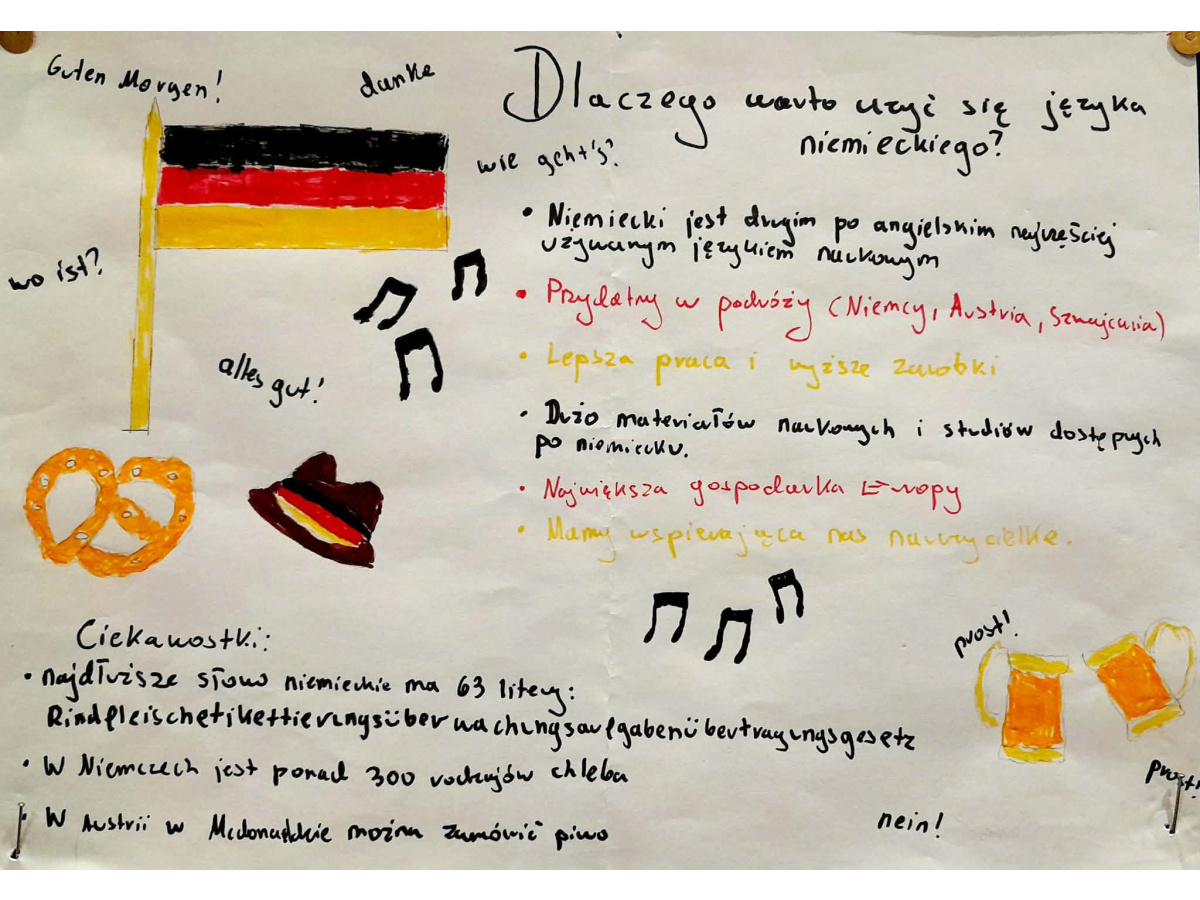 Guten Morgen!
danke
Dlaczego warto uczyć się języka
niemieckiego?
wie geht's?
wo ist?
alles gut!
• Niemiecki jest drugim po angielskim najczęściej
używanym językiem naukowym
• Przydatny w podróży (Niemcy, Austria, Szwajcaria)
• Lepsza praca i wyższe zarobki
• Dużo materiałów naukowych i studiów dostępnych
po niemiecku.
• Największa gospodarka Europy
• Mamy wspierającą nas nauczycielkę.
Ciekawostki:
• najdłuższe słowo niemieckie ma 63 litery:
Rindfleischetikettierungsüberwachungsaufgabenübertragungsgesetz
• W Niemczech jest ponad 300 rodzajów chleba
• W Austrii w Mcdonaldzie można zamówić piwo
prost!
prost!
nein!